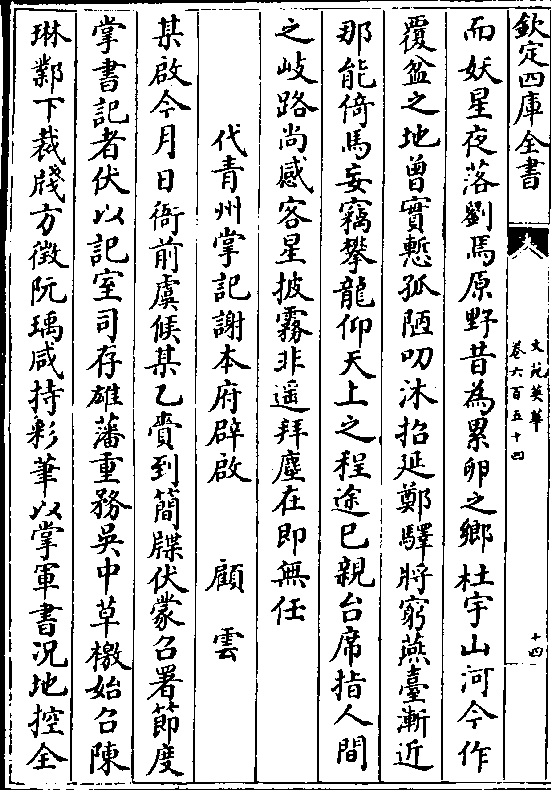 欽定四庫全書
文苑英華
卷六百五十四
十四
而妖星夜落劉馬原野昔為累卵之鄉杜宇山河今作
覆盆之地曾實慙孤陋叨沐招延鄭驛將窮燕臺漸近
那能倚馬妄竊攀龍仰天上之程途已親台席指人間
之岐路尚感客星披霧非遥拜塵在即無任
代青州掌記謝本府辟啟 顧雲
某啟今月日衙前虞候某乙賫到簡牒伏蒙召署節度
掌書記者伏以記室司存雄藩重務吳中草檄始召陳
琳鄴下裁牋方徵阮瑀咸持彩筆以掌軍書況地控全